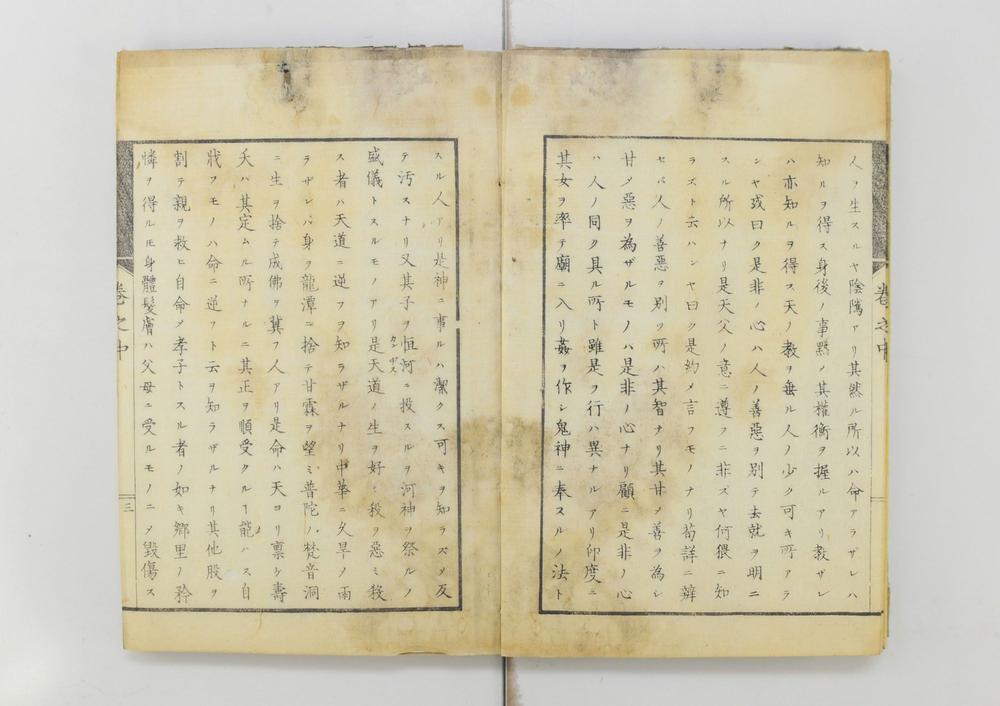 人ヲ生スルヤ陰隲アリ其然ル所以ハ命アラザレハ
知ルヲ得ス身後ノ事黙〆其權衡ヲ握ルアリ教ザレ
ハ亦知ルヲ得ス天ノ教ヲ垂ル人ノ少ク可キ所アラ
ンヤ或曰ク是非ノ心ハ人ノ善惡ヲ別テ去就ヲ明ニ
スル所以ナリ是天父ノ意ニ遵フニ非ズヤ何猥ニ知
ラズト云ハンヤ曰ク是約〆言フモノナリ荀詳ニ辨
セバ人ノ善惡ヲ別ツ所ハ其智ナリ其甘〆善ヲ為シ
甘〆惡ヲ為ザルモノハ是非ノ心ナリ顧ニ是非ノ心
ハ人ノ同ク具ル所ト雖是ヲ行ハ異ナルアリ印度ニ
其女ヲ率テ廟ニ入リ姦ヲ作シ鬼神ニ奉スルノ法ト
スル人アリ是神ニ事ルハ潔クス可キヲ知ラズ〆反
テ汚スナリ又其子ヲ恒河ニ投スルヲ河神ヲ祭ルノ
カンガス
盛儀トスルモノアリ是天道ノ生ヲ好ミ殺ヲ惡ミ殺
ス者ハ天道ニ逆フヲ知ラザルナリ中華ニ久旱ノ雨
ラザレバ身ヲ龍潭ニ捨テ甘霖ヲ望ミ普陀ノ梵音洞
ニ生ヲ捨テ成佛ヲ冀フ人アリ是命ハ天ヨリ禀ケ壽
夭ハ其定ムル所ナルニ其正ヲ順受クルヿ能ハス自
戕フモノハ命ニ逆フト云ヲ知ラザルナリ其他股ヲ
割テ親ヲ救ヒ自命〆孝子トスル者ノ如キ鄉里ノ矜
憐ヲ得ルモ身體髮膚ハ父母ニ受ルモノニ〆毀傷ス
卷之中
三
卷之中